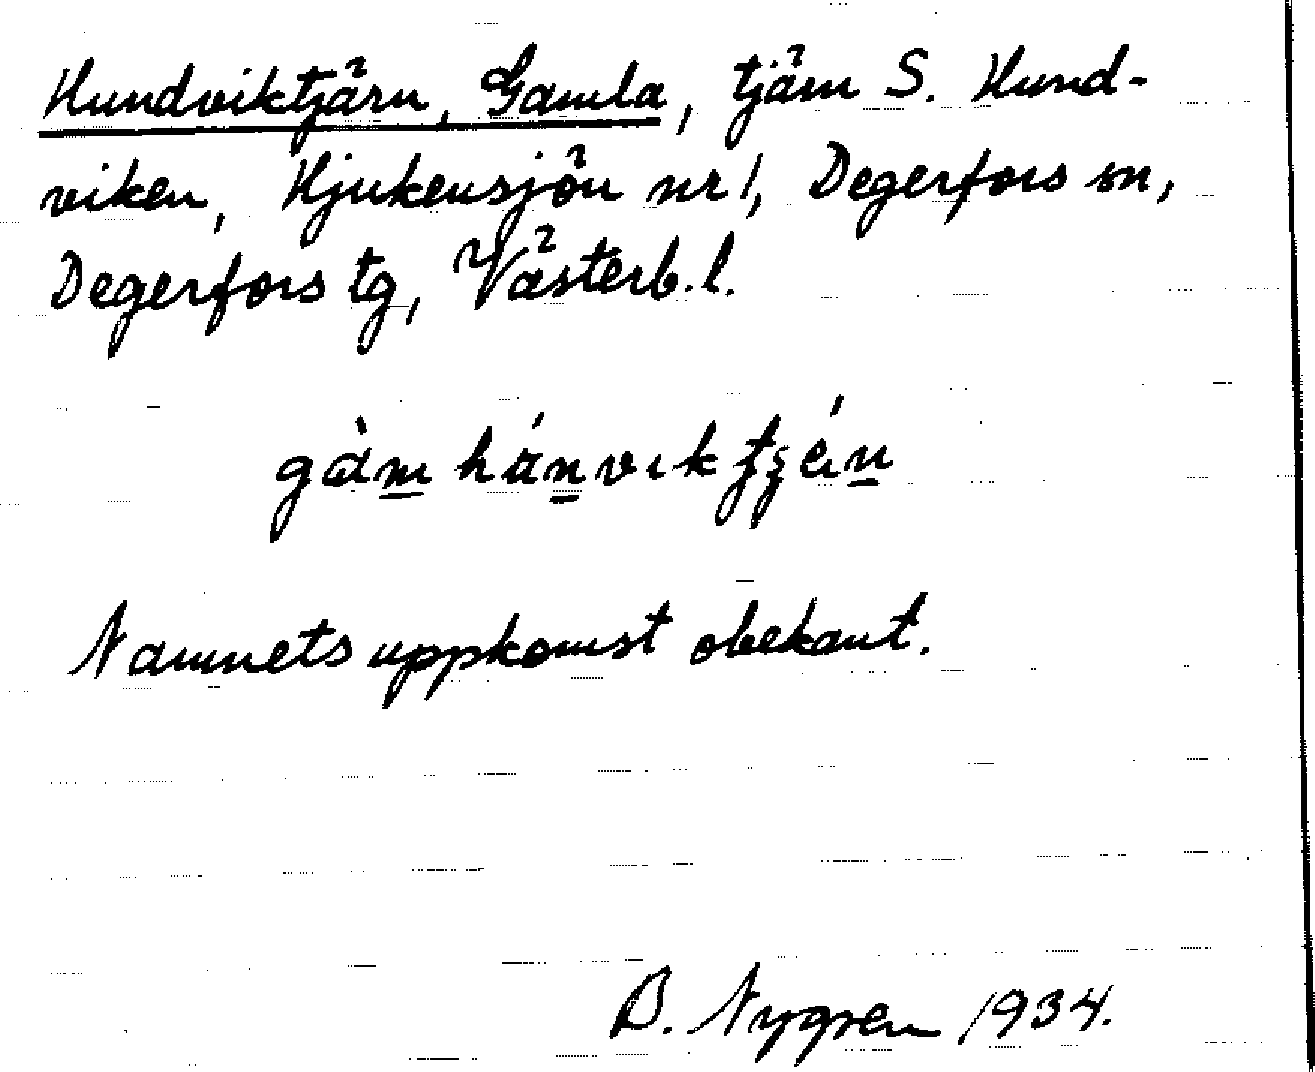 Hundviktjärn, Gamla, tjärn S. Hund-
viken, Hjukensjön nr 1, Degerfors sn,
Degerfors tg, Västerb. l.
Namnets uppkomst obekant.
B. Nygren 1934.